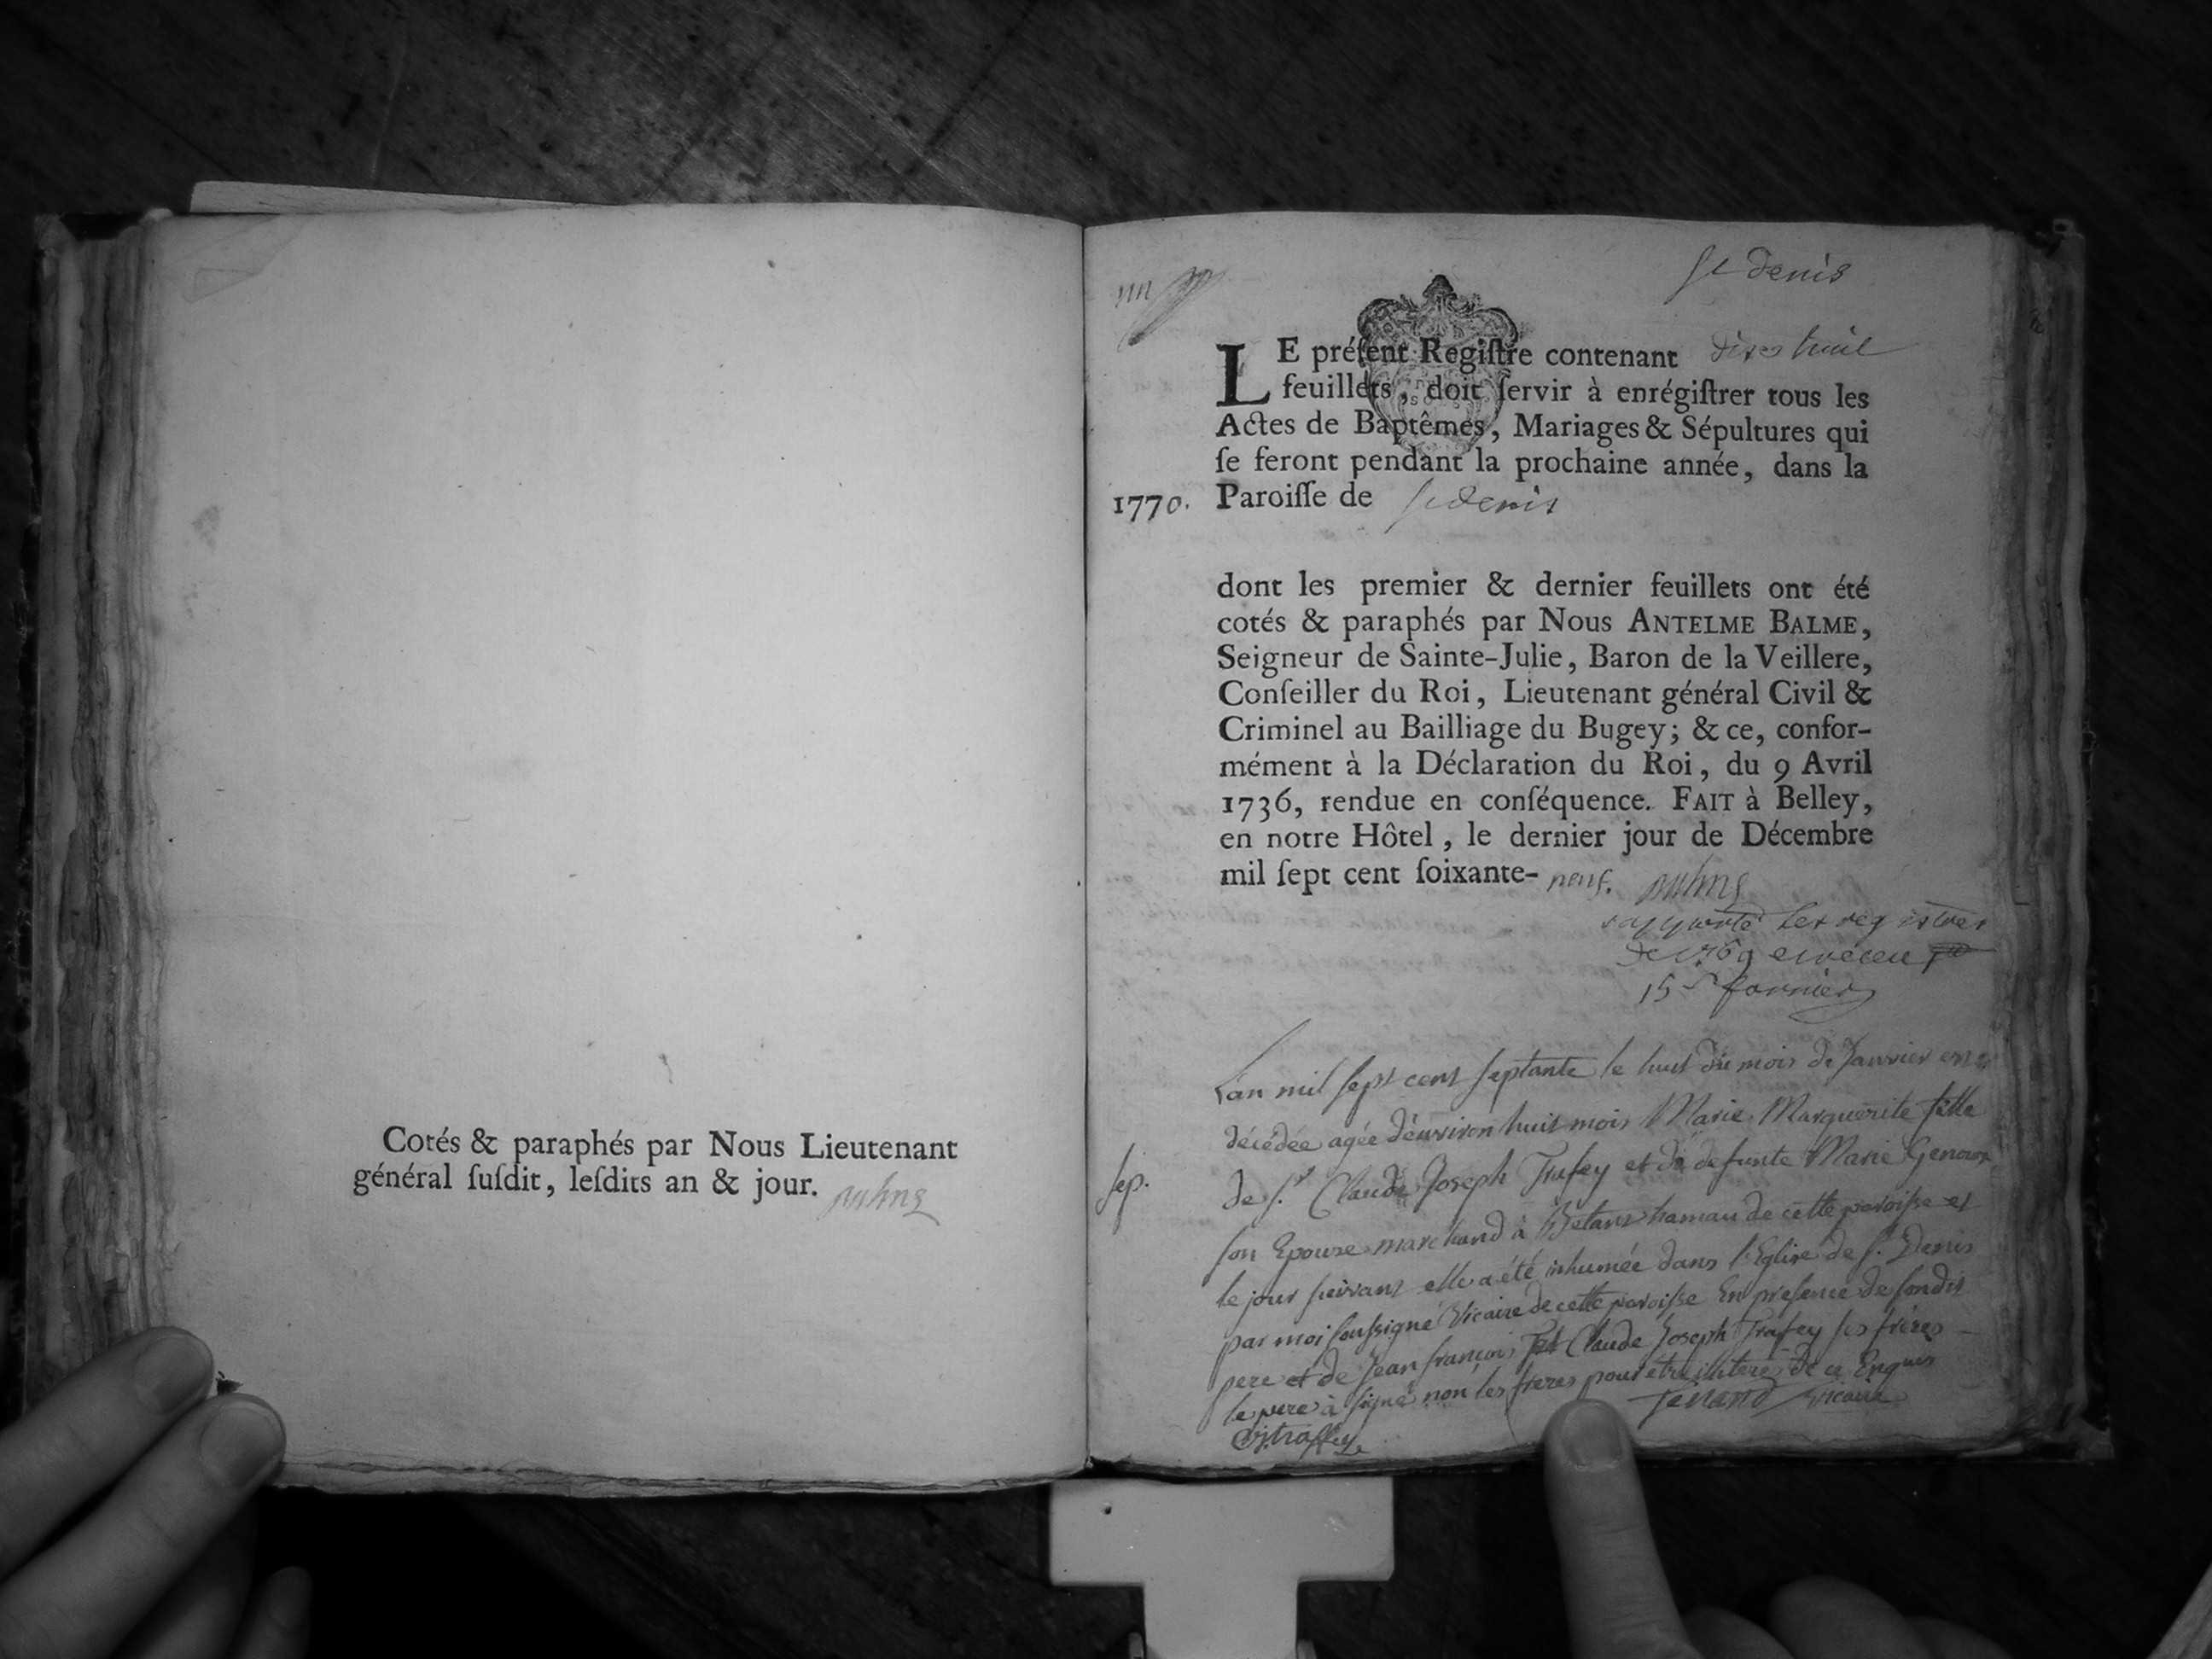 Cotés & paraphés par Nous Lieutenant
général ſuſdit, leſdits an & jour.
St denis
LE préſent Regiſtre contenant dix et huit
feuillets, doit ſervir à enrégiſtrer tous les
Actes de Baptêmes, Mariages & Sépultures qui
ſe feront pendant la prochaine année, dans la
1770. Paroiſſe de St denis
dont les premier & dernier feuillets ont été
cotés & paraphés par Nous ANTELME BALME,
Seigneur de Sainte-Julie, Baron de la Veillere,
Conſeiller du Roi, Lieutenant général Civil &
Criminel au Bailliage du Bugey; & ce, confor-
mément à la Déclaration du Roi, du 9 Avril
1736, rendue en conſéquence. FAIT à Belley,
en notre Hôtel, le dernier jour de Décembre
mil ſept cent ſoixante-neuf.
rapporté les registres
de 1769 et receu
15 s fornier
L'an mil sept cent septante le huit du mois de Janvier est
décédée agée d'environ huit mois Marie Marguerite fille
sep. de sr Claude Joseph Trafey et de defunte Marie Genoux
son Epouse marchand à Betans hamau de cette paroisse et
le jour suivant elle a été inhumée dans l'Eglise de st Denis
par moi soussigné Vicaire de cette paroisse En presence de sondit
pere et de Jean françois et Claude Joseph Trafey ses frères
le pere à signé non les freres pour être illiteré de ce Enquis
Tenand Vicaire